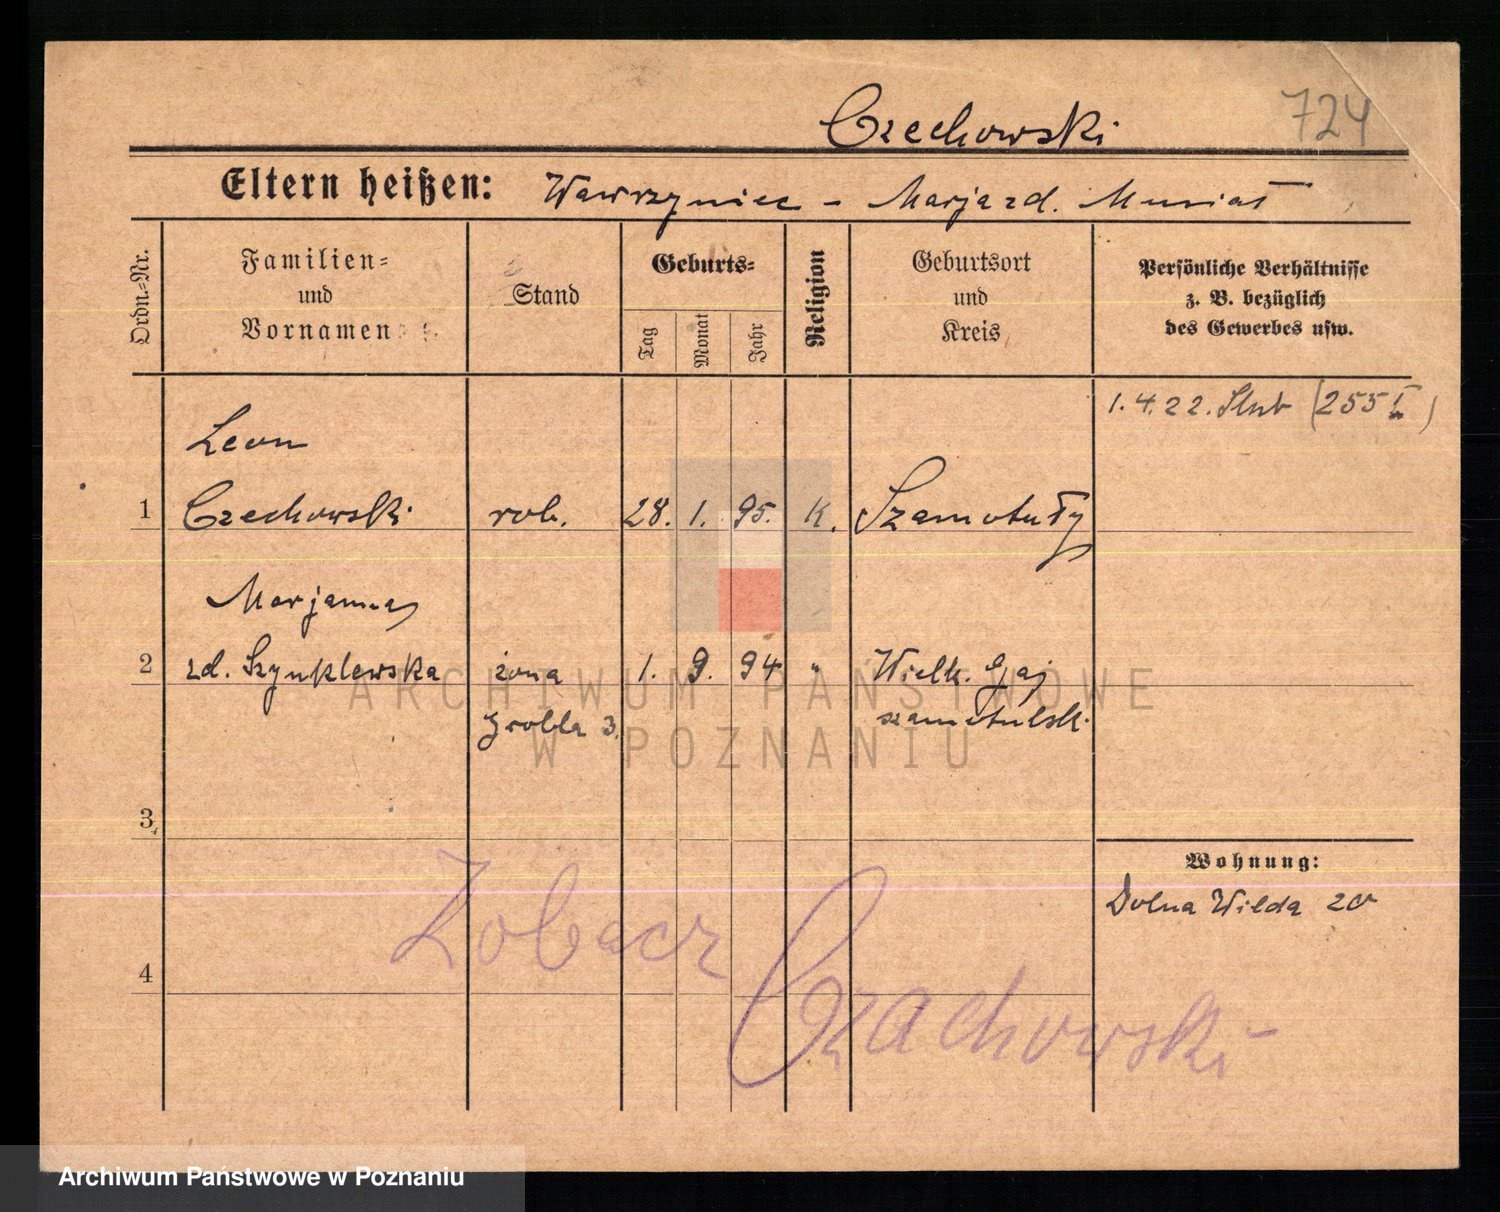 Czechowski 724
Eltern heißen: Wawrzyniec - Marja zd. Musiał
Ordn.-Nr.
Familien-
und
Vornamen
Stand
Geburts-
Tag
Monat
Jahr
Religion
Geburtsort
und
Kreis
Persönliche Verhältnisse
z. B. bezüglich
des Gewerbes usw.
1.4.22. Slub (255 I)
Leon
1 Czechowski rob. 28. 1. 95. K. Szamotuły
Marjanna
2 zd. Szynklewska żona 1. 9. 94 " Wielk. Gaj
Grobla 3. szamotulsk.
ARCHIWUM PAŃSTWOWE
W POZNANIU
3
Wohnung:
Dolna Wilda 20
Zobacz
4
Czachowski
Archiwum Państwowe w Poznaniu